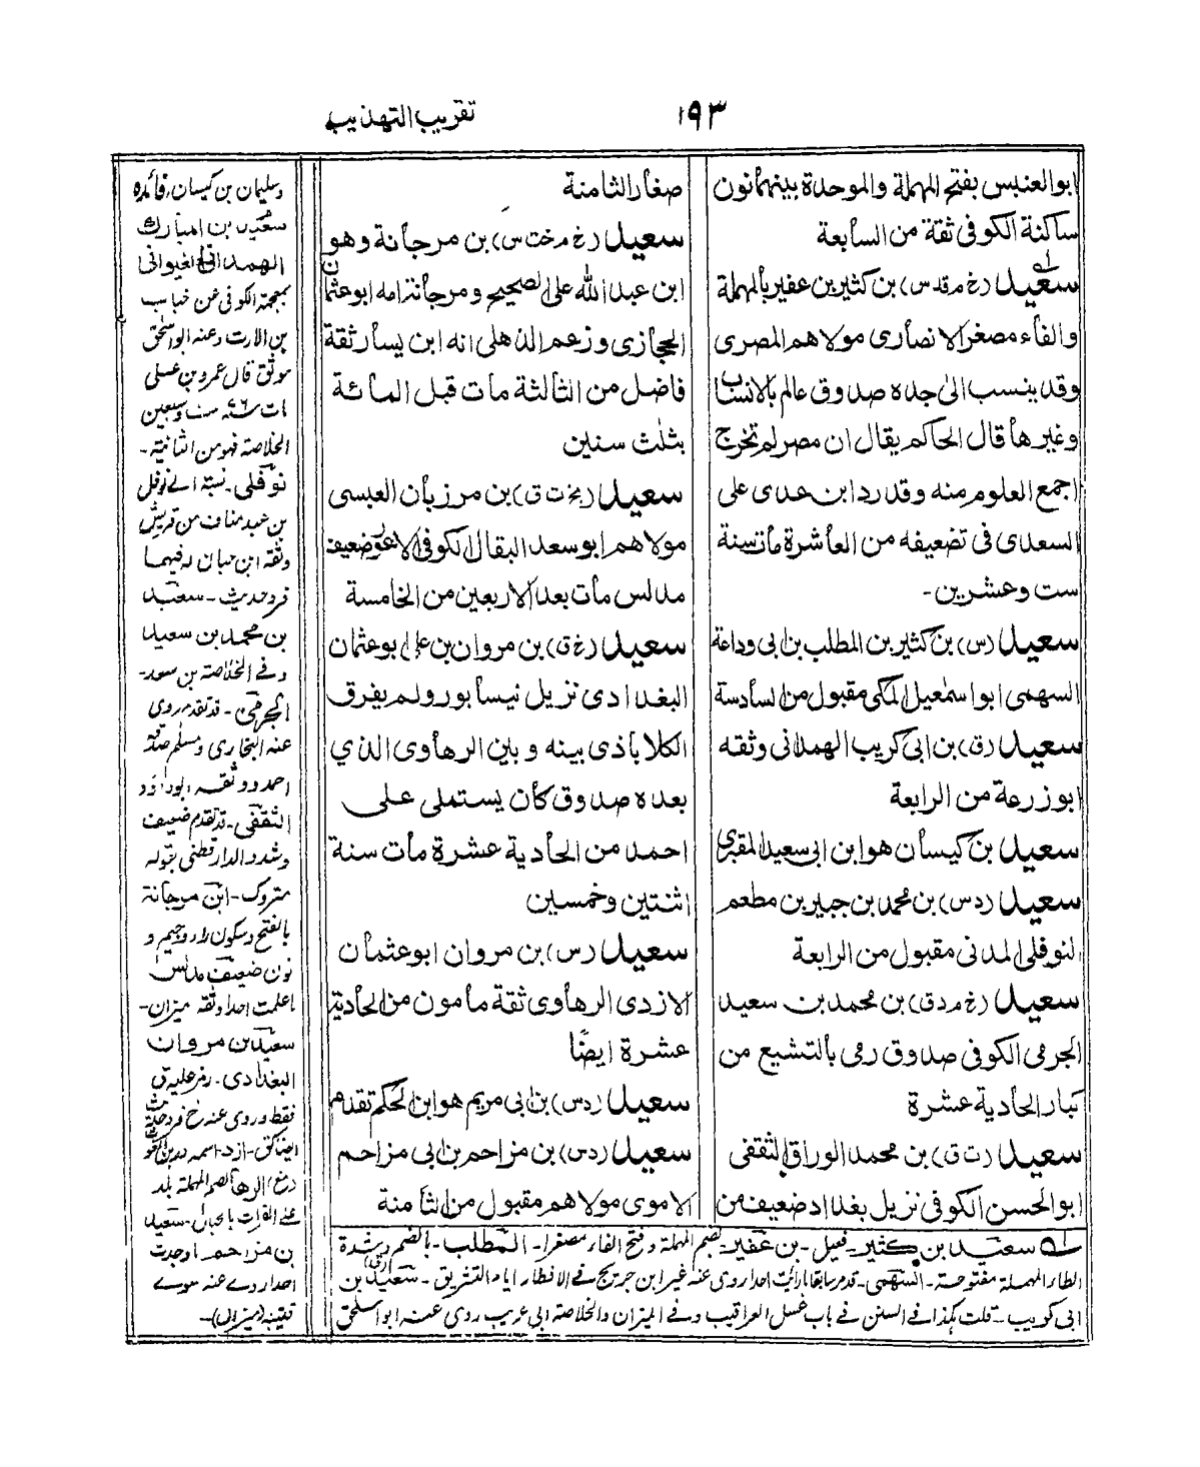 ١٩٣
تقريب التهذيب
ابوالعنبس بفتح المهملة والموحدة بينهما نون
ساكنة الكوفي ثقة من السابعة
سعيد (خ م قد س) بن كثير بن عفير بالمهملة
والفاء مصغر الانصارى مولاهم المصرى
وقد ينسب الى جده صدوق عالم بالانساب
وغيرها قال الحاكم يقال ان مصر لم تخرج
اجمع العلوم منه وقد رد ابن عدى على
السعدى فى تضعيفه من العاشرة مات سنة
ست وعشرين -
سعيد (س) بن كثير بن المطلب بن ابى وداعة
السهمى ابو اسمعيل المكى مقبول من السادسة
سعيد (ق) بن ابى كريب الهمدانى وثقه
ابوزرعة من الرابعة
سعيد بن كيسان هو ابن ابى سعيد المقبرى
سعيد (د س) بن محمد بن جبير بن مطعم
النوفلى المدنى مقبول من الرابعة
سعيد (خ م د ق) بن محمد بن سعيد
الجرمى الكوفى صدوق رمى بالتشيع من
كبار الحادية عشرة
سعيد (ت ق) بن محمد الوراق الثقفى
ابو الحسن الكوفى نزيل بغداد ضعيف من
صغار الثامنة
سعيد (خ م خت س) بن مرجانة وهو
ابن عبد الله على الصحيح ومرجانة امه ابو عثمان
الحجازى وزعم الذهلى انه ابن يسار ثقة
فاضل من الثالثة مات قبل المائة
بثلث سنين
سعيد (بخ ت ق) بن مرزبان العبسى
مولاهم ابو سعد البقال الكوفى الاعور ضعيف
مدلس مات بعد الاربعين من الخامسة
سعيد (خ ق) بن مروان بن على ابو عثمان
البغدادى نزيل نيسابور ولم يفرق
الكلاباذى بينه وبين الرهاوى الذي
بعده صدوق كان يستملى على
احمد من الحادية عشرة مات سنة
اثنتين وخمسين
سعيد (س) بن مروان ابو عثمان
الازدى الرهاوى ثقة مامون من الحادية
عشرة ايضًا
سعيد (د س) بن ابى مريم هو ابن الحكم تقدم
سعيد (د س) بن مزاحم بن ابى مزاحم
الاموى مولاهم مقبول من الثامنة
له سعيد بن كثير - فعيل - بن عفير - بضم المهملة وفتح الفاء مصغرا - المطلب - بالضم وشدة
الطاء المهملة مفتوحة - السهمى - قدم سابقا ما رأيت احدا روى عنه غير ابن جريج فى الافطار ايام التشريق - سعيد بن
ابى كريب - قلت هكذا فى السنن فى باب غسل العراقيب وفى الميزان والخلاصة ابى كريب روى عنه ابو اسحق
وسليمان بن كيسان، فائده
سعيد بن المبارك
الهمدانى الخيوانى
بمعجمة الكوفى عن خباب
بن الارت وعنه ابو اسحق
موثق قال عمرو بن على
مات سنة ٧٦ ست وسبعين
الخلاصة فهو من الثانية -
نوفلى - نسبة الى نوفل
بن عبد مناف من قريش
وثقه ابن حبان له فيهما
فرد حديث - سعيد
بن محمد بن سعيد
وفى الخلاصة بن سعد -
الجرمى - قد تقدم روى
عنه البخارى ومسلم صدقه
احمد ووثقه ابو داؤد
الثقفى - قد تقدم ضعيف
وشدد الدارقطنى بقوله
متروك - ابن مرجانة
بالفتح وسكون راء وجيم و
نون ضعيف مدلس
ما علمت احدا وثقه ميزان -
سعيد بن مروان
البغدادى - رمز عليه ق
فقط وروى عنه خ فرد حديث
الرها بضم المهملة بلد
على الفرات بالجبال - سعيد
بن مزاحم ما وجدت
احدا روى عنه سوى
قتيبة (ميزان) -